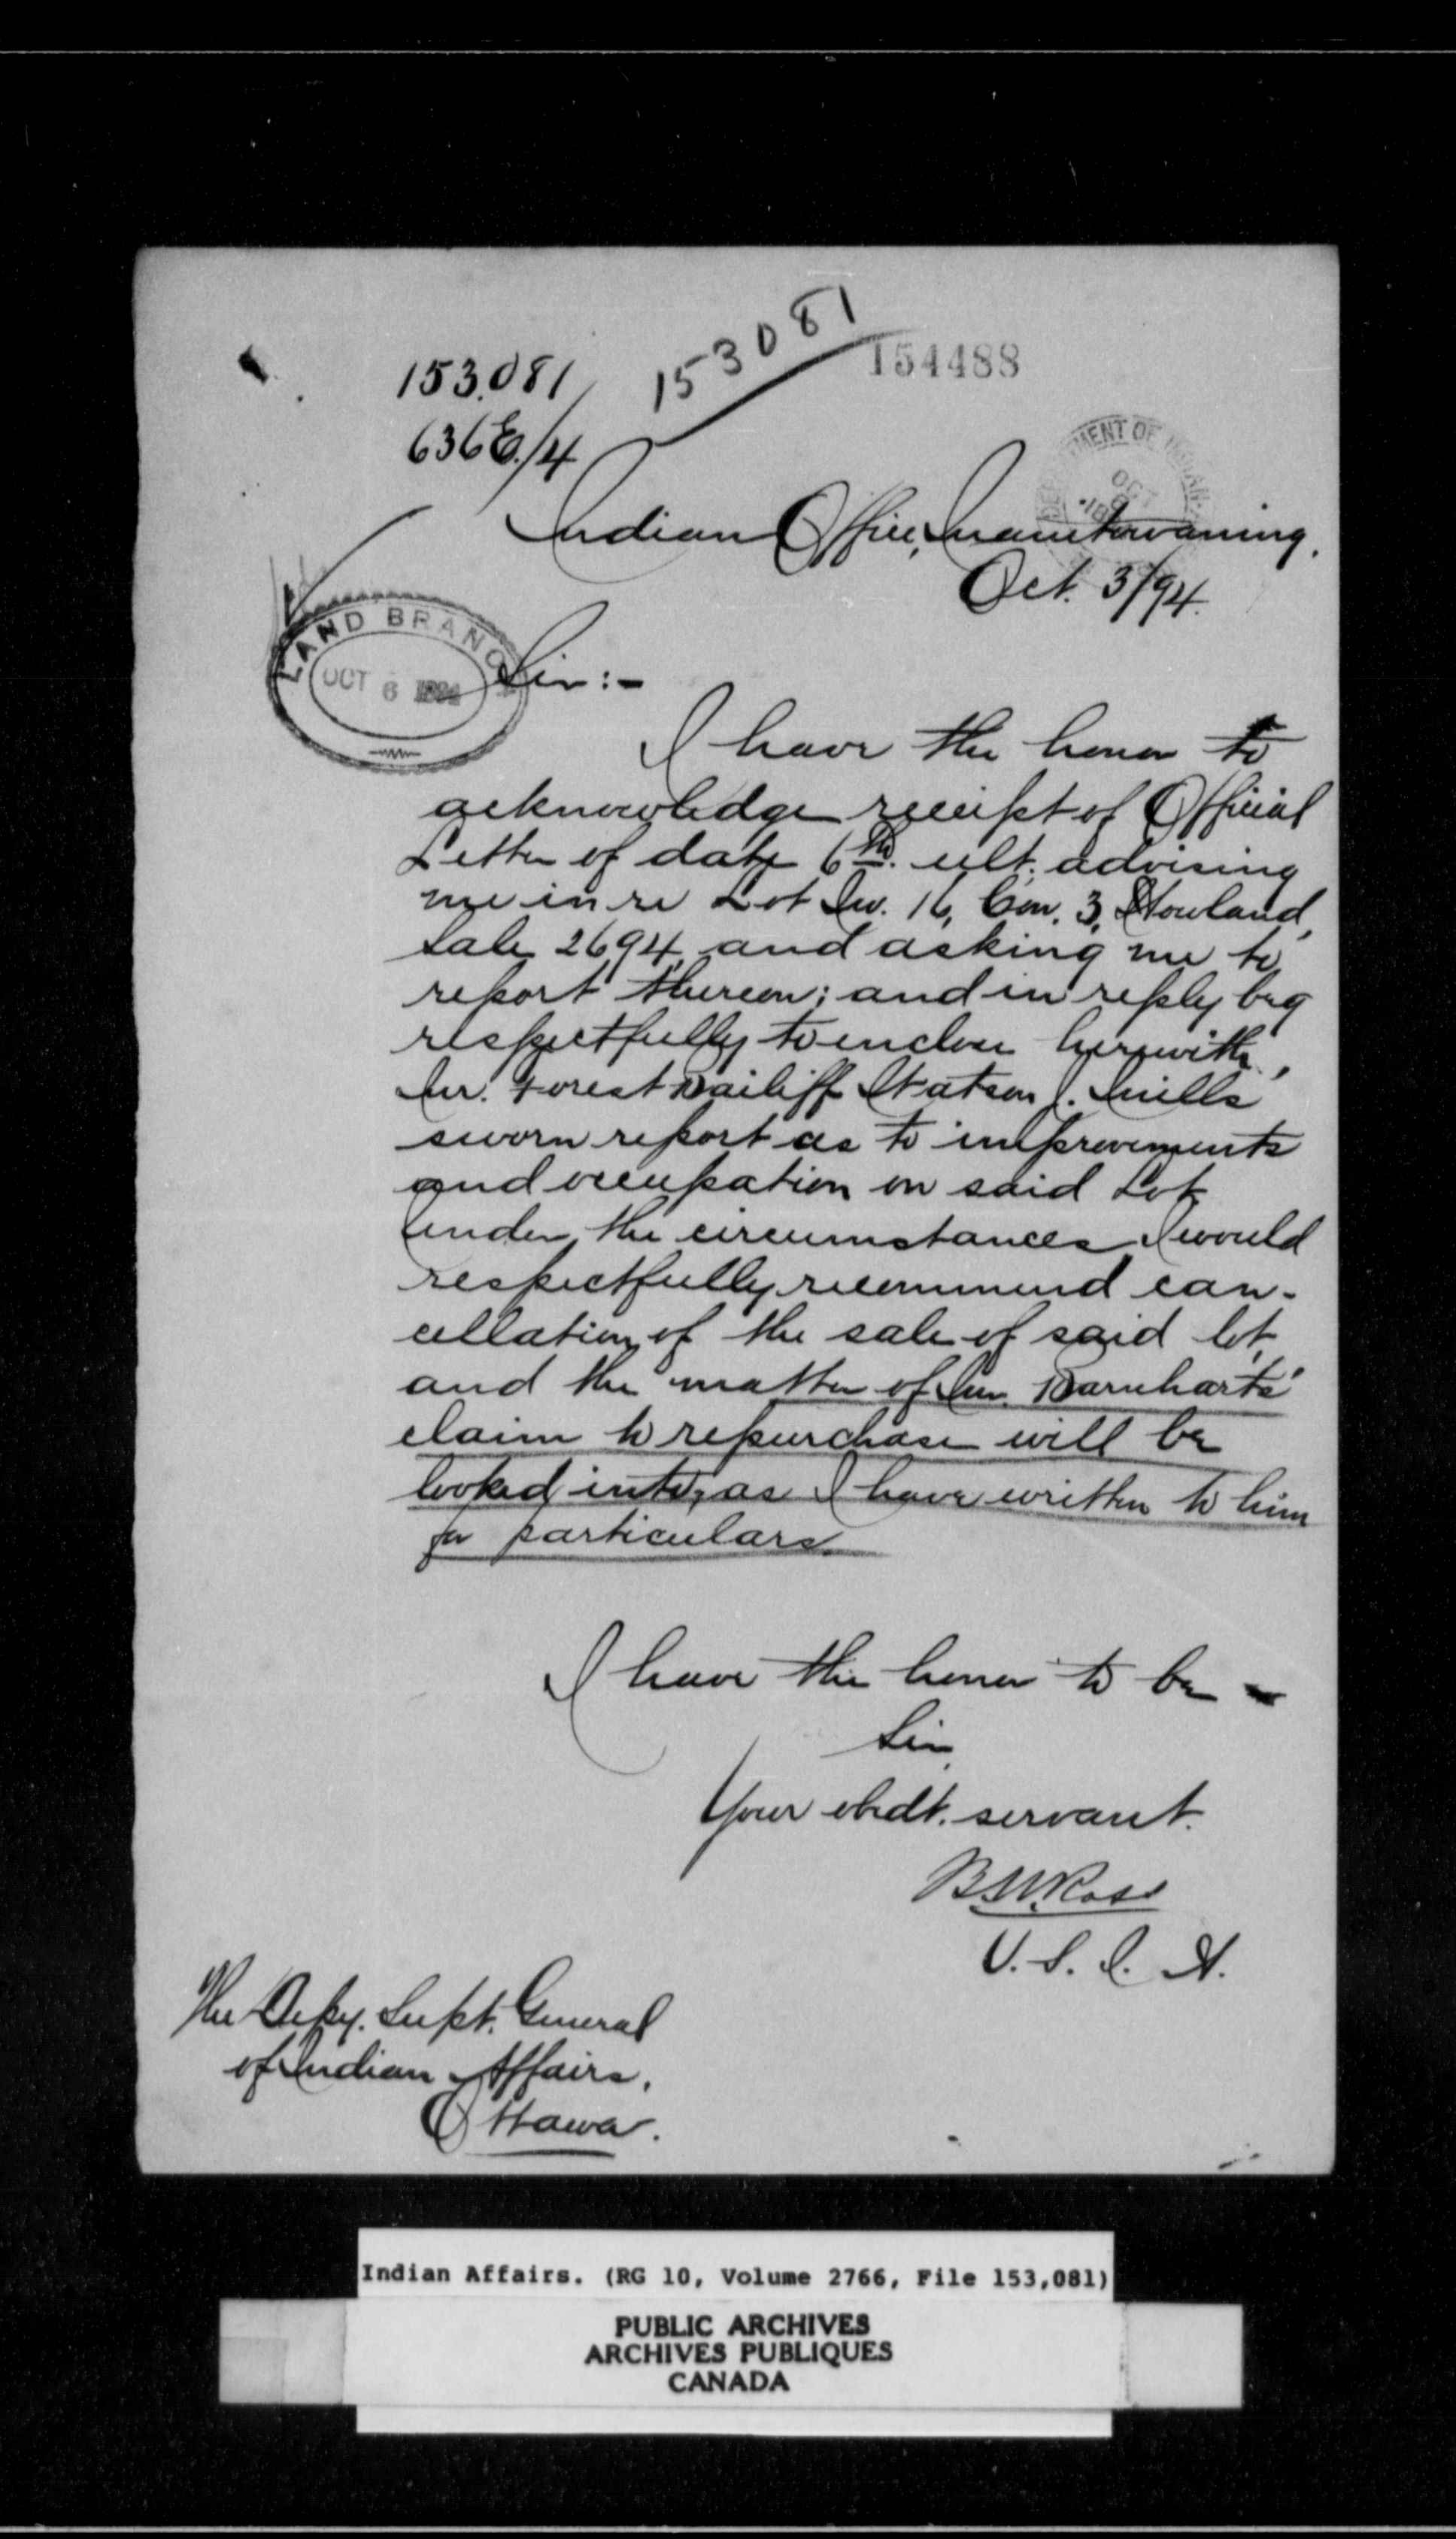 153081
154488
153.081
636 E./4
DEPARTMENT OF INDIAN
OCT
189
Indian Office, Manitowaning,
Oct. 3/94.
LAND BRANCH
OCT 6 1894
Sir:-
I have the honor to
acknowledge receipt of Official
Letter of date 6th. ult. advising
me in re Lot No. 16, Con. 3, Howland,
Sale 2694, and asking me to
report thereon; and in reply beg
respectfully to enclose herewith,
Mr. Forest Bailiff Watson J. Mills'
sworn report as to improvements
and occupation on said Lot
Under the circumstances I would
respectfully recommend can-
cellation of the sale of said lot,
and the matter of Mr. Barnharts'
claim to repurchase will be
looked into, as I have written to him
for particulars.
I have the honor to be
Sir,
Your obedt. servant.
B.W. Ross
V. S. I. A.
The Depy. Supt. General
of Indian Affairs,
Ottawa.
Indian Affairs. (RG 10, Volume 2766, File 153,081)
PUBLIC ARCHIVES
ARCHIVES PUBLIQUES
CANADA